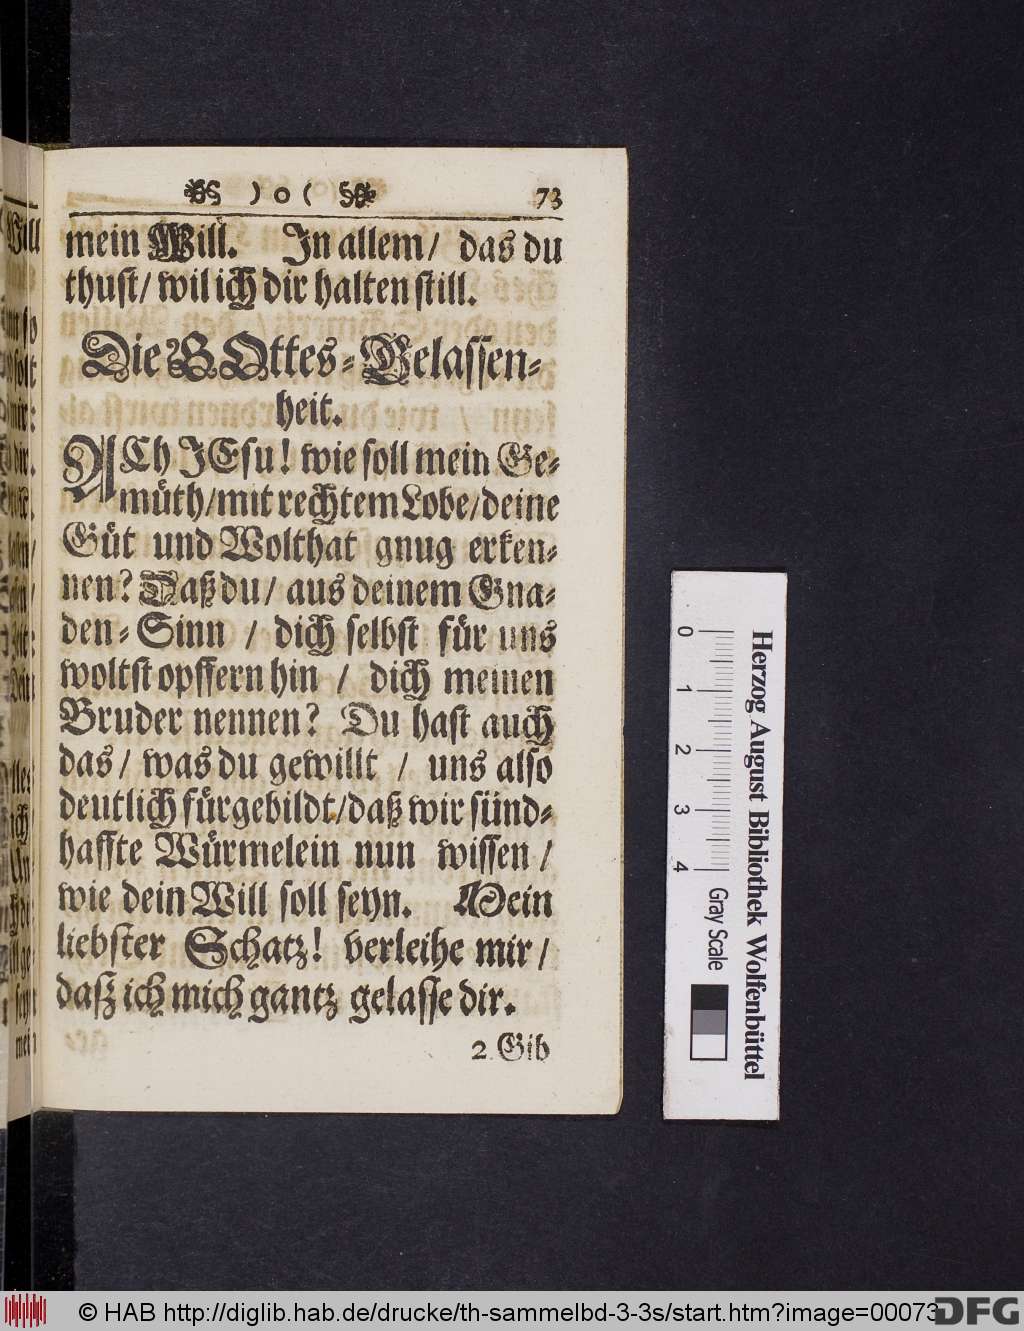 ) o ( 73
mein Will. In allem / das du
thust / wil ich dir halten still.
Die GOttes-Gelassen-
heit.
ACh JEsu! wie soll mein Ge-
müth / mit rechtem Lobe / deine
Güt und Wolthat gnug erken-
nen? Daß du / aus deinem Gna-
den-Sinn / dich selbst für uns
woltst opffern hin / dich meinen
Bruder nennen? Du hast auch
das / was du gewillt / uns also
deutlich fürgebildt / daß wir sünd-
haffte Würmelein nun wissen /
wie dein Will soll seyn. Mein
liebster Schatz! verleihe mir /
daß ich mich gantz gelasse dir.
2. Gib
Will
0 1 2 3 4
Gray Scale
Herzog August Bibliothek Wolfenbüttel
© HAB http://diglib.hab.de/drucke/th-sammelbd-3-3s/start.htm?image=00073
DFG